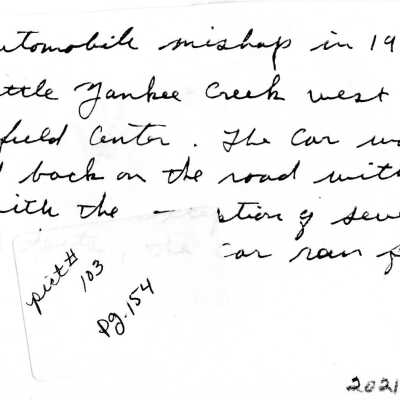 utomobile mishap in 19
ttle Yankee Creek west
field Center. The car wa
d back on the road wit
ith the ption of seve
car ran f
pict#
103
pg. 154
2021